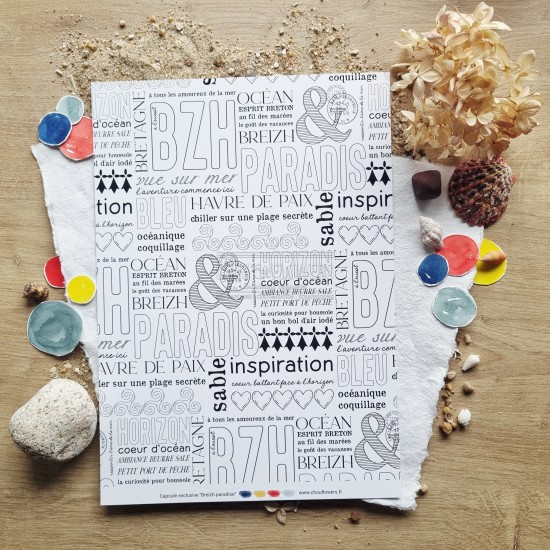 coquillage
HORIZON
à tous les amoureux de la mer
OCÉAN
ESPRIT BRETON
au fil des marées
le goût des vacances
BREIZH
&
HORIZON
coeur d'océan
AMBIANCE BEURRE SALÉ
PETIT PORT DE PÊCHE
la curiosité pour boussole
un bon bol d'air iodé
BRETAGNE
à l'ouest
BZH
PARADIS
vue sur mer
l'aventure commence ici
BLEU
HAVRE DE PAIX
chiller sur une plage secrète
sable
inspiration
coeur battant face à l'horizon
océanique
coquillage
OCÉAN
ESPRIT BRETON
au fil des marées
le goût des vacances
BREIZH
&
HORIZON
coeur d'océan
AMBIANCE BEURRE SALÉ
PETIT PORT DE PÊCHE
la curiosité pour boussole
un bon bol d'air iodé
BRETAGNE
à l'ouest
BZH
PARADIS
vue sur mer
l'aventure commence ici
HAVRE DE PAIX
chiller sur une plage secrète
sable
inspiration
coeur battant face à l'horizon
BLEU
océanique
coquillage
HORIZON
coeur d'océan
AMBIANCE BEURRE SALÉ
PETIT PORT DE PÊCHE
la curiosité pour boussole
BRETAGNE
à l'ouest
à tous les amoureux de la mer
BZH
OCÉAN
ESPRIT BRETON
au fil des marées
le goût des vacances
BREIZH
&
Capsule exclusive "Breizh paradise"
www.chouflowers.fr